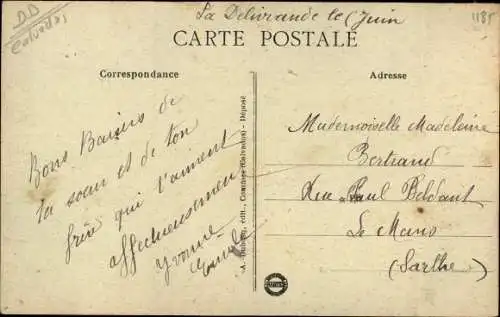 DD
Calvados
La Délivrande le 1 Juin
1185
CARTE POSTALE
Correspondance
Adresse
Bons Baisers de
ta sœur et de ton
frère qui t'aiment
affectueusement
Yvonne
Emile
édit., (Calvados) - Déposé
Mademoiselle Madeleine
Bertrand
Rue Paul
Le Mans
(Sarthe)